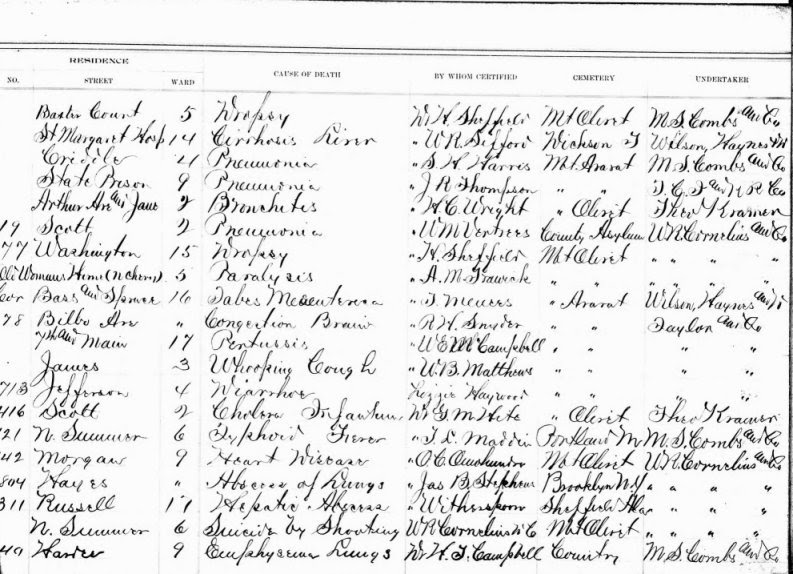 RESIDENCE
NO. STREET WARD CAUSE OF DEATH BY WHOM CERTIFIED CEMETERY UNDERTAKER
Baxter Court 5 Dropsy Dr H. Sheffield Mt Olivet M. S. Combs and Co
St Margaret Hosp 14 Cirrhosis Liver " W R. Sifford Dickson T Wilson, Haynes
4 Pneumonia " S. W. Harris Mt. Ararat M. S. Combs and Co
State Prison 9 Pneumonia " J R Thompson " " T. C. I and R R Co
Arthur Ave and Jane 2 Bronchites " H. C. Wright " Olivet Theo Kramer
19 Scott 2 Pneumonia " W M Vertrees County Asylum W R Cornelius and Co
77 Washington 15 Dropsy " H. Sheffield Mt Olivet " " "
Old Womans Home (N cherry) 5 Paralysis " A. M. Trawick " " " " "
Cor Bass and Spruce 16 Tabes Mesenterica " " Ararat Wilson, Haynes and
78 Bilbo Ave " Congestion Brain " R H. Snyder " " Taylor and Co
7th and Main 17 Pertussis " W E McCampbell " " " "
James 3 Whooping Cough " W B. Matthews " " " "
713 Jefferson 4 Diarrhoe Lizzie Haywood " " " "
416 Scott 2 Cholera Infantum Dr G. M Hite " Olivet Theo Kramer
21 N. Summer 6 Typhoid Fever " T. L. Maddin Portland M. S. Combs and Co
42 Morgan 9 Heart Disease " O. C. Omohundro Mt Olivet W R. Cornelius and Co
804 Hayes " Abscess of Lungs " Jas B. Stephens Brooklyn N. Y " " " "
311 Russell 17 Hepatic Abscess " Witherspoon Sheffield Ala " " " "
N. Summer 6 Suicide by Shooting W R Cornelius Mt Olivet " " "
49 Harder 9 Emphysema Lungs Dr W. T. Campbell Country M. S. Combs and Co